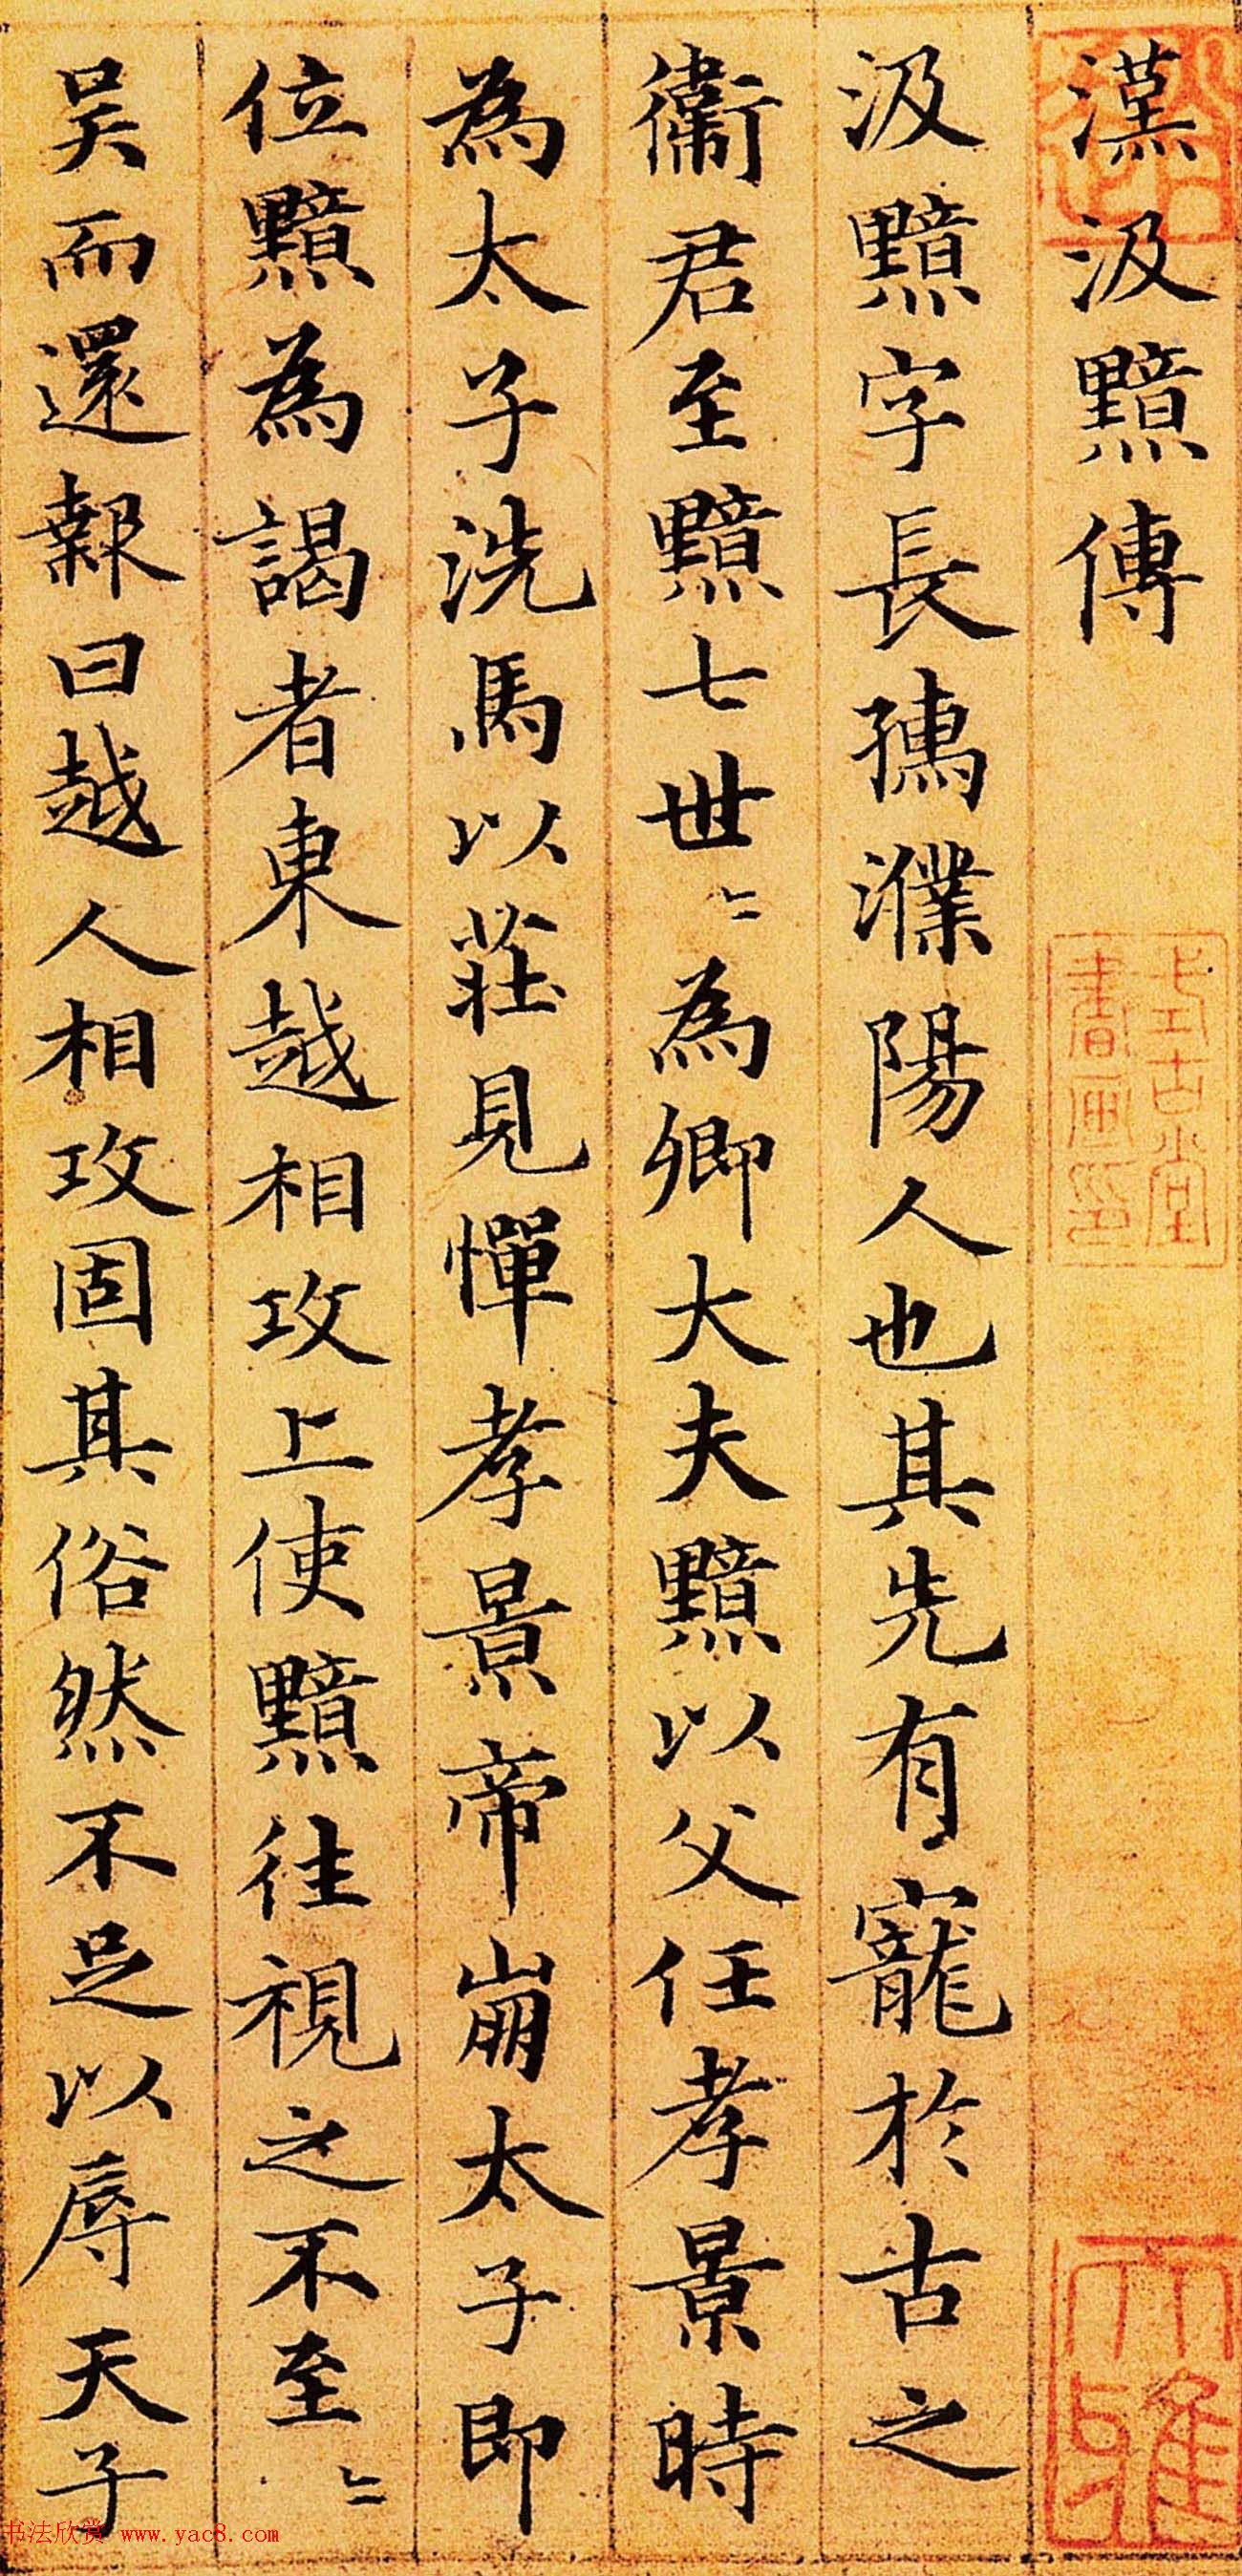 漢汲黯傳
汲黯字長孺濮陽人也其先有寵於古之
衛君至黯七世〻為卿大夫黯以父任孝景時
為太子洗馬以莊見憚孝景帝崩太子即
位黯為謁者東越相攻上使黯往視之不至〻
吳而還報曰越人相攻固其俗然不足以辱天子
式古堂
書畫印
书法欣赏 www.yac8.com